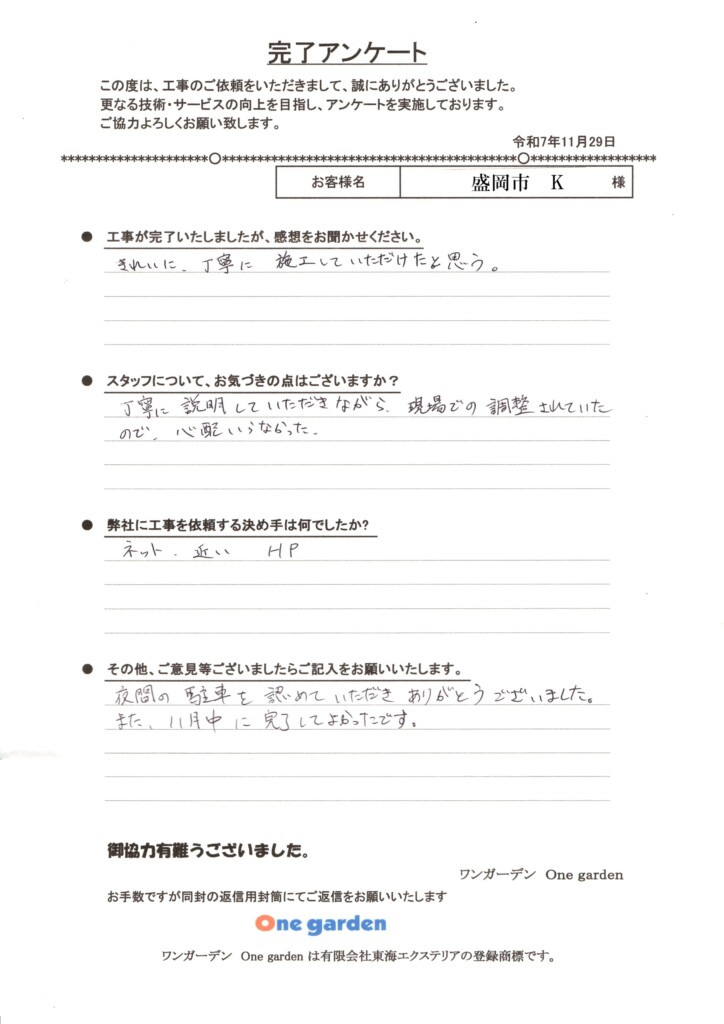 完了アンケート
この度は、工事のご依頼をいただきまして、誠にありがとうございました。
更なる技術・サービスの向上を目指し、アンケートを実施しております。
ご協力よろしくお願い致します。
令和7年11月29日
お客様名 盛岡市 K 様
● 工事が完了いたしましたが、感想をお聞かせください。
きれいに、丁寧に 施工していただけたと思う。
● スタッフについて、お気づきの点はございますか？
丁寧に 説明していただきながら、現場での 調整されていた
ので、心配いらなかった。
● 弊社に工事を依頼する決め手は何でしたか?
ネット、近い HP
● その他、ご意見等ございましたらご記入をお願いいたします。
夜間の 駐車を 認めていただき ありがとうございました。
また、11月中に 完了してよかったです。
御協力有難うございました。
ワンガーデン One garden
お手数ですが同封の返信用封筒にてご返信をお願いいたします
One garden
ワンガーデン One garden は有限会社東海エクステリアの登録商標です。